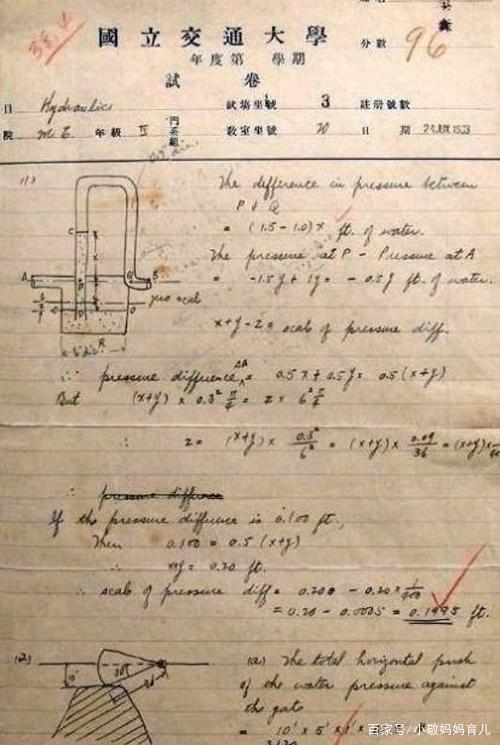 國立交通大學
年度第 學期
試卷
分數 96
日 Hydraulics 試場坐號 3 註册號數
院 M.E. 年級 IV 門系組 教室坐號 20 日期 24 JUN 1933
(1)
The difference in pressure between
P & Q
= (1.5 - 1.0) x ft. of water.
The pressure at P - Pressure at A
= -1.5y + 1y = -0.5y ft. of water.
C
A
B
zero scale
R
x+y-z = scale of pressure diff.
∴ pressure difference = 0.5x + 0.5y = 0.5(x+y)
But (x+y) × 0.3² π/4 = z × 6² π/4
∴ z = (x+y) × 0.3²/6² = (x+y) × 0.09/36 = (x+y) ×
∴ pressure difference
If the pressure difference is 0.100 ft.,
Then 0.100 = 0.5 (x+y)
∴ x+y = 0.20 ft.
∴ scale of pressure diff = 0.200 - 0.20 × 1/400
= 0.20 - 0.0005 = 0.1995 ft.
(2)
10'
30°
(a) The total horizontal push
of the water pressure against
the gate
= 10' × 5' ×
百家号/小敬妈妈育儿